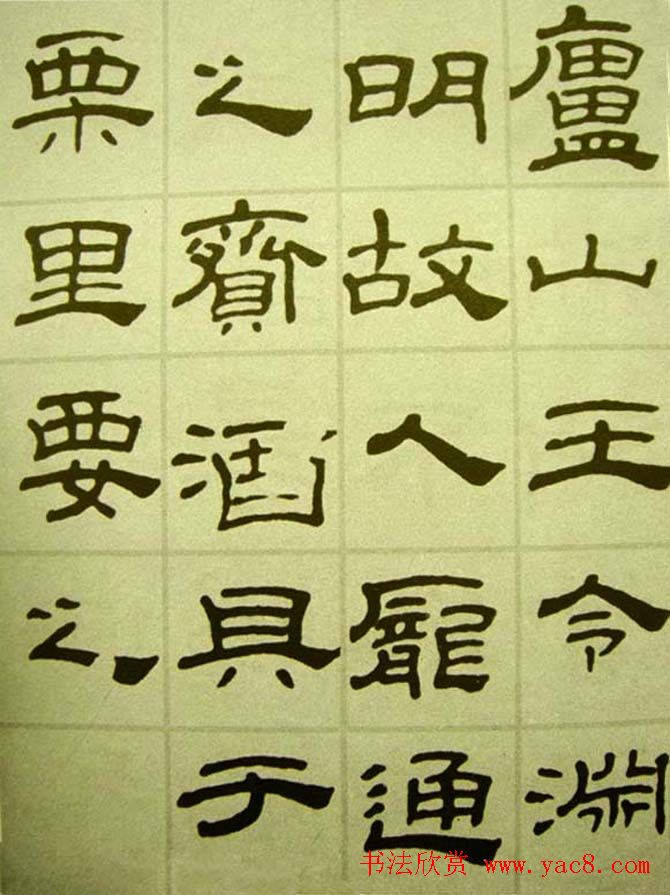 廬山王令淵
明故人龐通
之齎酒具于
栗里要之
书法欣赏 www.yac8.com